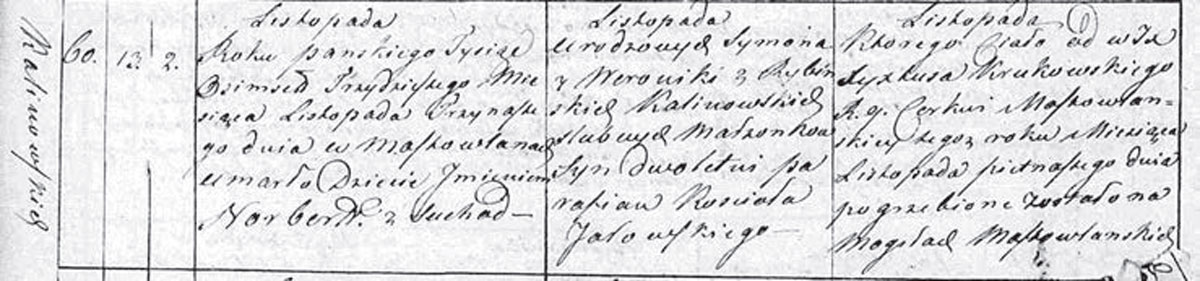 Kalinowskich
60. 13. 2.
Listopada
Roku panskiego Tysiąc
Ośmset Trzydziestego Mie
siąca Listopada Trzynaste
go dnia w Mastowlanach
umarło Dziecie Jmieniem
Norbert z Suchad—
Listopada
Urodzonych Symona
y Weroniki z Rybin
skich Kalinowskich
slubnych Małzonkow
syn dwoletni pa
rafian Koscioła
Jałowskiego—
Listopada
Ktorego Ciało od w Jx
Syxtusa Krukowskiego
Cerkwi Mastowlan=
skiey tegoz roku Miesiąca
Listopada pietnastego dnia
pogrzebione zostało na
Mogiłach Mastowlanskich